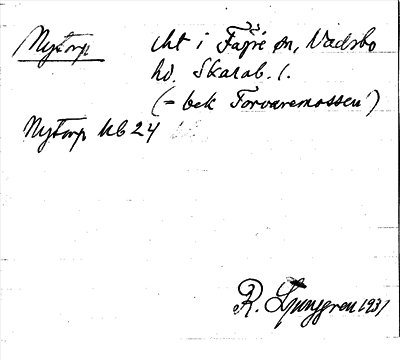 Nytorp lht i Fägré sn, Vadsbo
hd. Skarab. l.
(= bek Torvaremossen)
Nytorp Ub 24
R. Ljunggren 1931